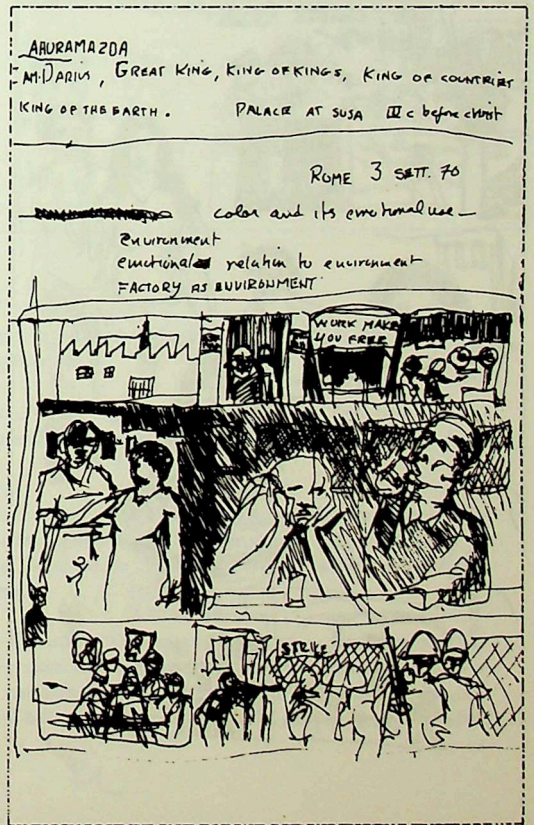 AHURAMAZDA
I AM DARIUS, GREAT KING, KING OF KINGS, KING OF COUNTRIES
KING OF THE EARTH. PALACE AT SUSA III c before christ
ROME 3 SETT. 70
color and its emotional use —
environment
emotional relation to environment
FACTORY AS ENVIRONMENT
WORK MAKE
YOU FREE
STRIKE